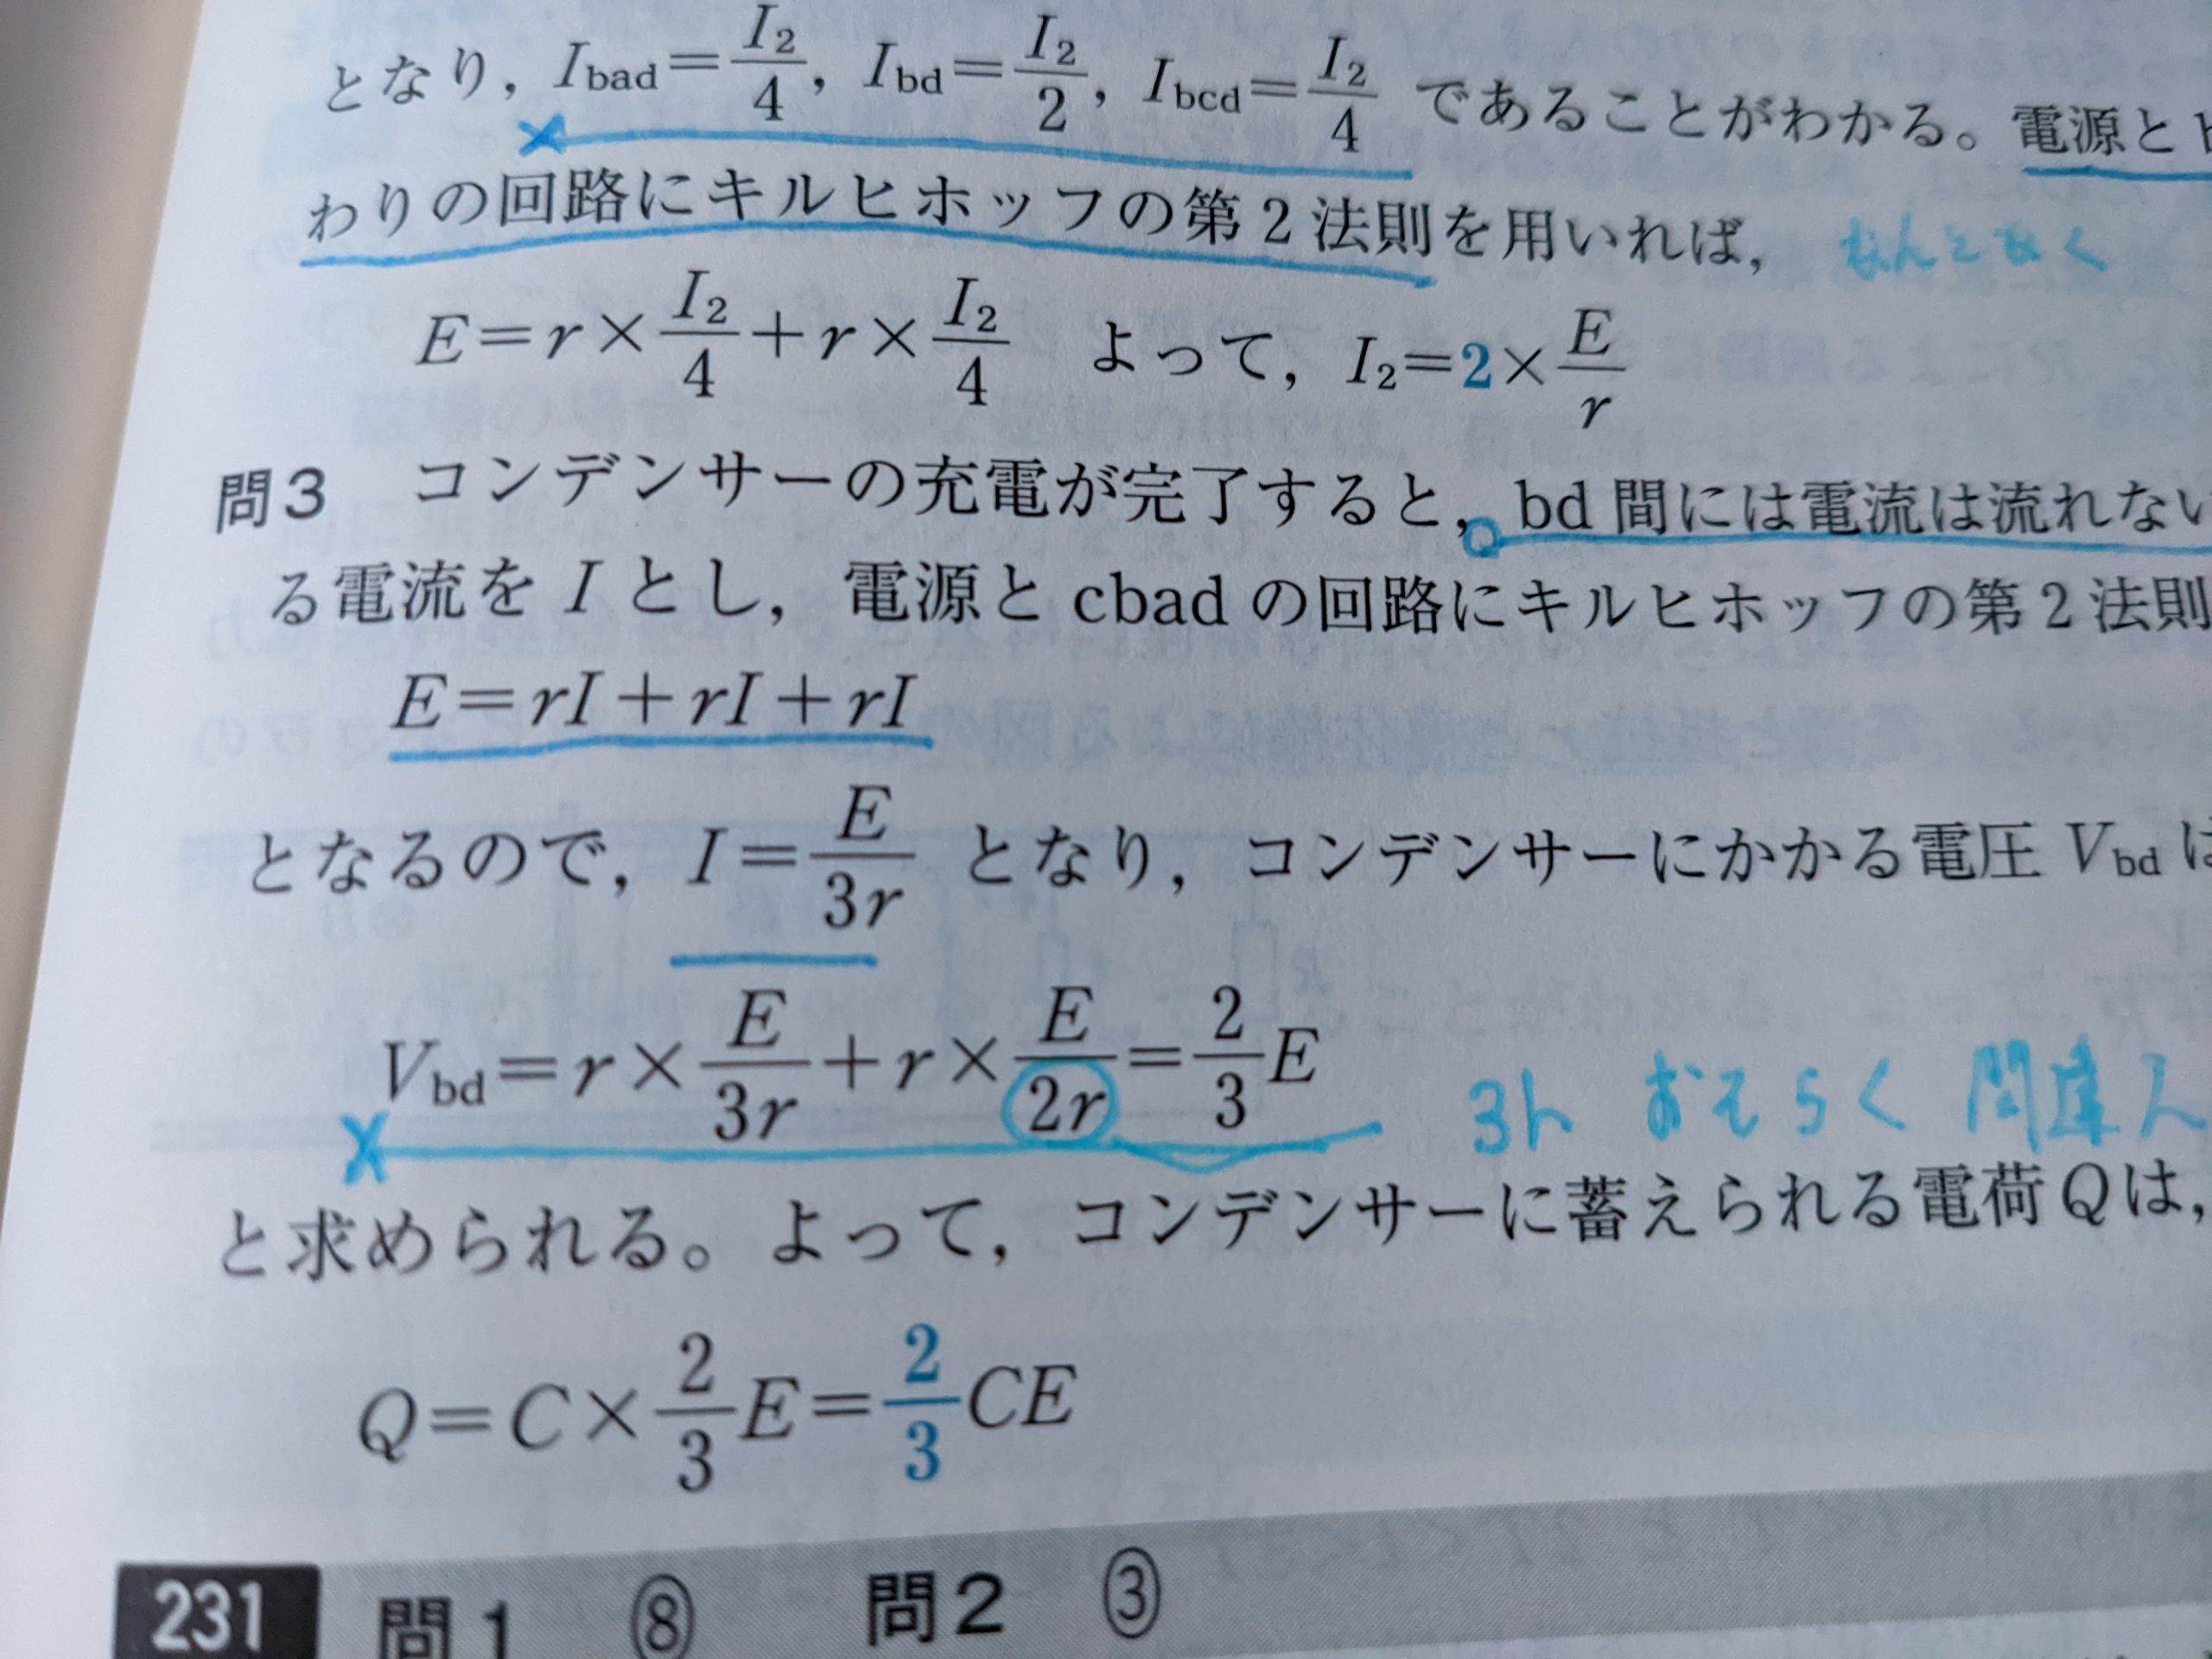 となり, I_bad=I₂/4, I_bd=I₂/2, I_bcd=I₂/4 であることがわかる。電源と
わりの回路にキルヒホッフの第2法則を用いれば, なんとなく
E=r×I₂/4+r×I₂/4 よって, I₂=2×E/r
問3 コンデンサーの充電が完了すると, bd間には電流は流れない
る電流をIとし, 電源とcbadの回路にキルヒホッフの第2法則
E=rI+rI+rI
となるので, I=E/3r となり, コンデンサーにかかる電圧V_bdは
V_bd=r×E/3r+r×E/2r=2/3E 3r おそらく 間違え
と求められる。よって, コンデンサーに蓄えられる電荷Qは,
Q=C×2/3E=2/3CE
231 問1 ⑧ 問2 ③